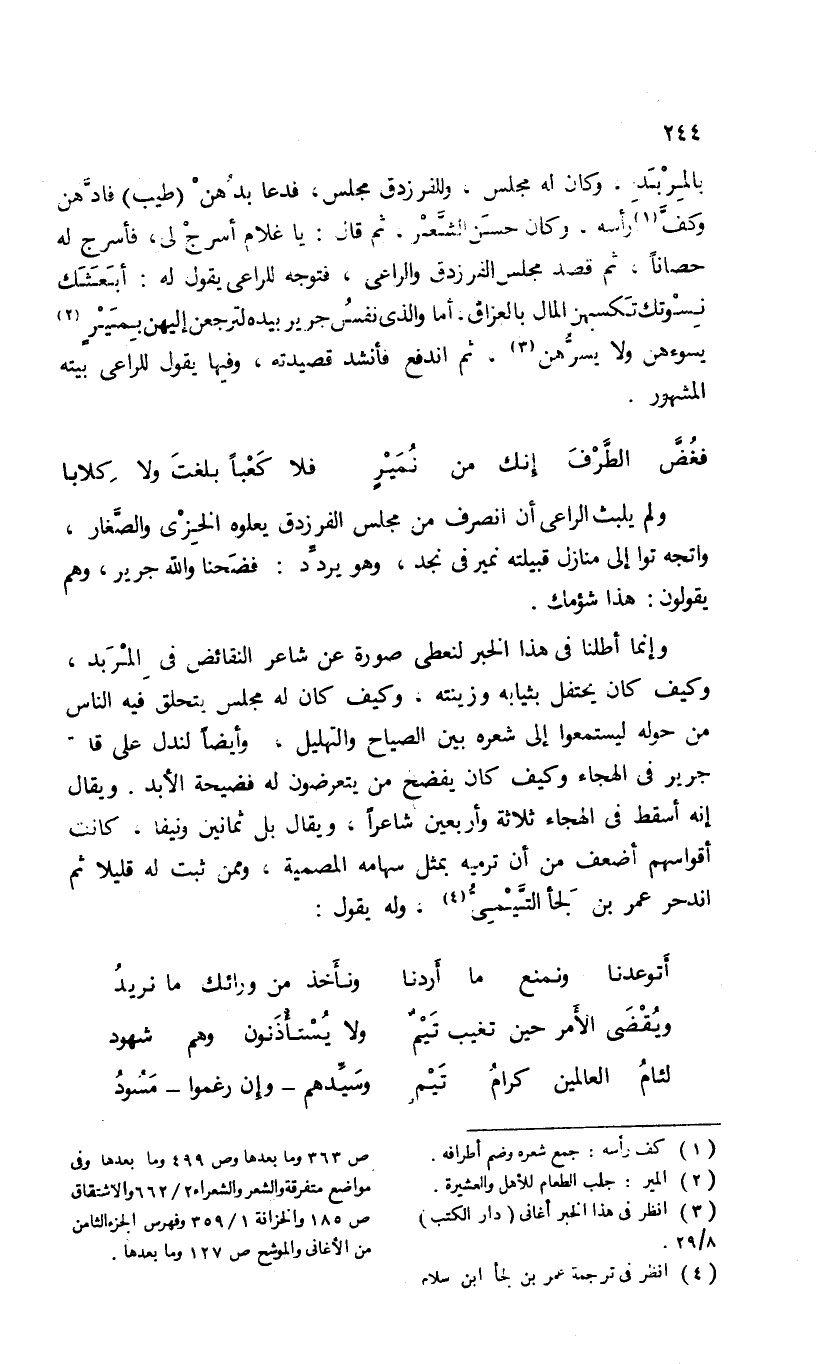 ٢٤٤
بالمِرْبَد . وكان له مجلس ، وللفرزدق مجلس ، فدعا بدُهن (طيب) فادَّهن
وكفَّ(١) رأسه . وكان حسن الشَّعْر . ثم قال : يا غلام أسرجْ لى، فأسرج له
حصاناً ، ثم قصد مجلس الفرزدق والراعى ، فتوجه للراعى يقول له : أبَعَثَتك
نِسْوتك تكسبهن المال بالعراق . أما والذى نفسُ جرير بيده لترجعن إليهن بِمَيْرٍ (٢)
يسوءهن ولا يسرُّهن(٣) . ثم اندفع فأنشد قصيدته ، وفيها يقول للراعى بيته
المشهور .
فغُضَّ الطَّرْفَ إنك من نُمَيْرٍ فلا كَعْباً بلغتَ ولا كِلابا
ولم يلبث الراعى أن انصرف من مجلس الفرزدق يعلوه الخِزْى والصَّغار ،
واتجه توا إلى منازل قبيلته نمير فى نجد ، وهو يردِّد : فضَحنا والله جرير ، وهم
يقولون : هذا شؤمك .
وإنما أطلنا فى هذا الخبر لنعطى صورة عن شاعر النقائض فى المِرْبد ،
وكيف كان يحتفل بثيابه وزينته . وكيف كان له مجلس يتحلق فيه الناس
من حوله ليستمعوا إلى شعره بين الصياح والتهليل ، وأيضاً لندل على قا
جرير فى الهجاء وكيف كان يفضح من يتعرضون له فضيحة الأبد . ويقال
إنه أسقط فى الهجاء ثلاثة وأربعين شاعراً ، ويقال بل ثمانين ونيفا ، كانت
أقواسهم أضعف من أن ترميه بمثل سهامه المصمية ، وممن ثبت له قليلا ثم
اندحر عمر بن لجأ التَّيْمىُّ(٤) ، وله يقول :
أَتوعدنا ونمنع ما أَردنا ونأخذ من ورائك ما نريدُ
ويُقْضَى الأَمر حين تغيب تَيْمٌ ولا يُسْتأْذَنون وهم شهود
لئامُ العالمين كرامُ تَيْمٍ وسَيِّدهم – وإن رغموا – مَسُودُ
(١) كف رأسه : جمع شعره وضم أطرافه .
(٢) المير : جلب الطعام للأهل والعشيرة .
(٣) انظر فى هذا الخبر أغانى ( دار الكتب )
٢٩/٨ .
(٤) انظر فى ترجمة عمر بن لجأ ابن سلام
ص ٣٦٣ وما بعدها وص ٤٩٩ وما بعدها وفى
مواضع متفرقة والشعر والشعراء ٦٦٢/٢ والاشتقاق
ص ١٨٥ والخزانة ٣٥٩/١ وفهرس الجزء الثامن
من الأغانى والموشح ص ١٢٧ وما بعدها .